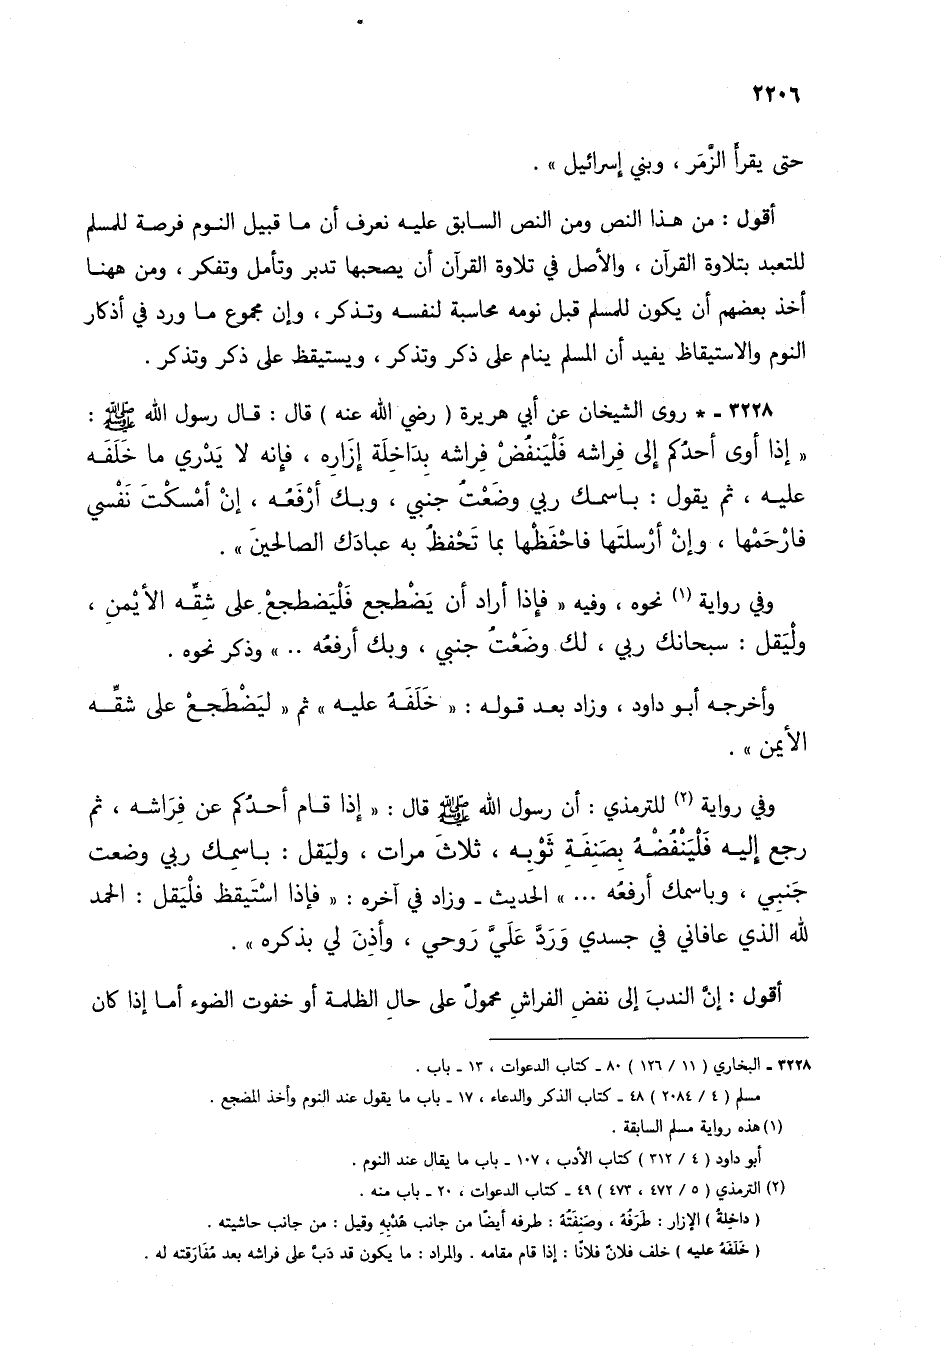 ٢٢٠٦
حتى يقرأَ الزُّمَر ، وبني إسرائيل » .
أقول : من هـذا النص ومن النص السـابق عليـه نعرف أن مـا قبيل النـوم فرصـة للمسلم
للتعبد بتلاوة القرآن ، والأصل في تلاوة القرآن أن يصحبها تدبر وتأمل وتفكر ، ومن ههنـا
أخذ بعضهم أن يكون للمسلم قبل نومه محاسبة لنفسـه وتـذكر ، وإن مجموع مـا ورد في أذكار
النوم والاستيقاظ يفيد أن المسلم ينام على ذكر وتذكر ، ويستيقظ على ذكر وتذكر .
٣٢٢٨ ـ * روى الشيخان عن أبي هريرة ( رضي الله عنه ) قال : قـال رسول الله ﷺ :
« إذا أوى أحدُكم إلى فِراشه فَلْيَنفُضْ فِراشه بِدَاخِلَة إِزَارِه ، فإنه لا يَدْري ما خَلَفَـه
عليـه ، ثم يقول : بـاسمـك ربي وضَعْتُ جنبي ، وبـك أرْفَعُـه ، إنْ أمْسكْتَ نَفْسي
فارْحَمْها ، وإنْ أرْسلتَها فاحْفَظْها بما تَحْفظُ به عبادَك الصالحينَ » .
وفي رواية (١) نحوه ، وفيه « فإذا أراد أن يَضْطجع فَلْيَضطجعْ على شقِّـه الأيْمنِ ،
ولْيَقل : سبحانك ربي ، لك وضَعْتُ جنبي ، وبك أرفعُه .. » وذكر نحوه .
وأخرجـه أبـو داود ، وزاد بعـد قولـه : « خَلَفَـهُ عليـه » ثم « ليَضْطجعْ على شقِّـه
الأيمن » .
وفي رواية (٢) للترمذي : أن رسول الله ﷺ قال : « إذا قـام أحـدُكم عن فِرَاشـه ، ثم
رجع إليـه فَلْيَنْفُضْـهُ بِصَنِفَـةِ ثَوْبِـه ، ثلاثَ مرات ، وليَقل : بـاسمِـك ربي وضعت
جَنبِي ، وبـاسمك أرفعُه ... » الحديث ـ وزاد في آخره : « فإذا اسْتَيقظ فلْيَقل : الحمد
لله الذي عافاني في جسدي وَرَدَّ عَلَيَّ رَوحي ، وأذِنَ لي بذكره » .
أقول : إنَّ الندبَ إلى نفضِ الفراشِ محمولٌ على حالِ الظلمـة أو خفوت الضوء أمـا إذا كان
٣٢٢٨ ـ البخاري ( ١١ / ١٢٦ ) ٨٠ ـ كتاب الدعوات ، ١٣ ـ باب .
مسلم ( ٤ / ٢٠٨٤ ) ٤٨ ـ كتاب الذكر والدعاء ، ١٧ ـ باب ما يقول عند النوم وأخذ المضجع .
(١) هذه رواية مسلم السابقة .
أبو داود ( ٤ / ٣١٢ ) كتاب الأدب ، ١٠٧ ـ باب ما يقال عند النوم .
(٢) الترمذي ( ٥ / ٤٧٢ ، ٤٧٣ ) ٤٩ ـ كتاب الدعوات ، ٢٠ ـ باب منه .
( داخِلةُ ) الإزار : طَرَفُهُ ، وصَنِفَتُهُ : طرفه أيضًا من جانب هُدْبِهِ وقيل : من جانب حاشيته .
( خَلَفَهُ عليه ) خلف فلانٌ فلانًا : إذا قام مقامه . والمراد : ما يكون قد دَبَّ على فراشه بعد مُفَارَقته له .